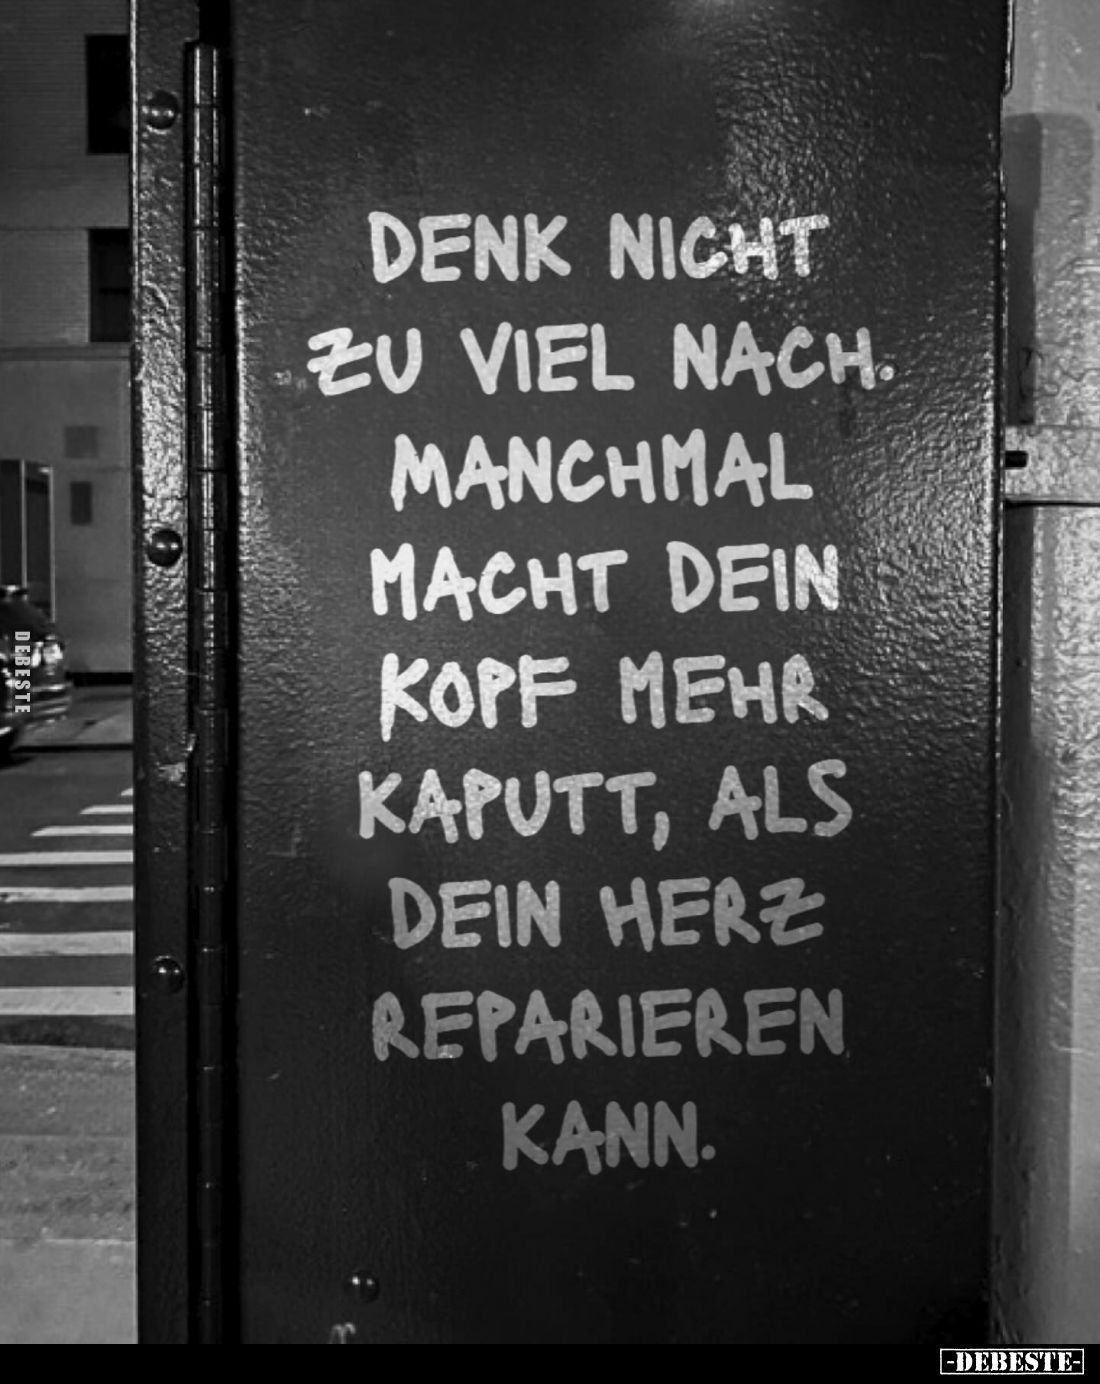 DENK NICHT
ZU VIEL NACH.
MANCHMAL
MACHT DEIN
KOPF MEHR
KAPUTT, ALS
DEIN HERZ
REPARIEREN
KANN.
DEBESTE
-DEBESTE-